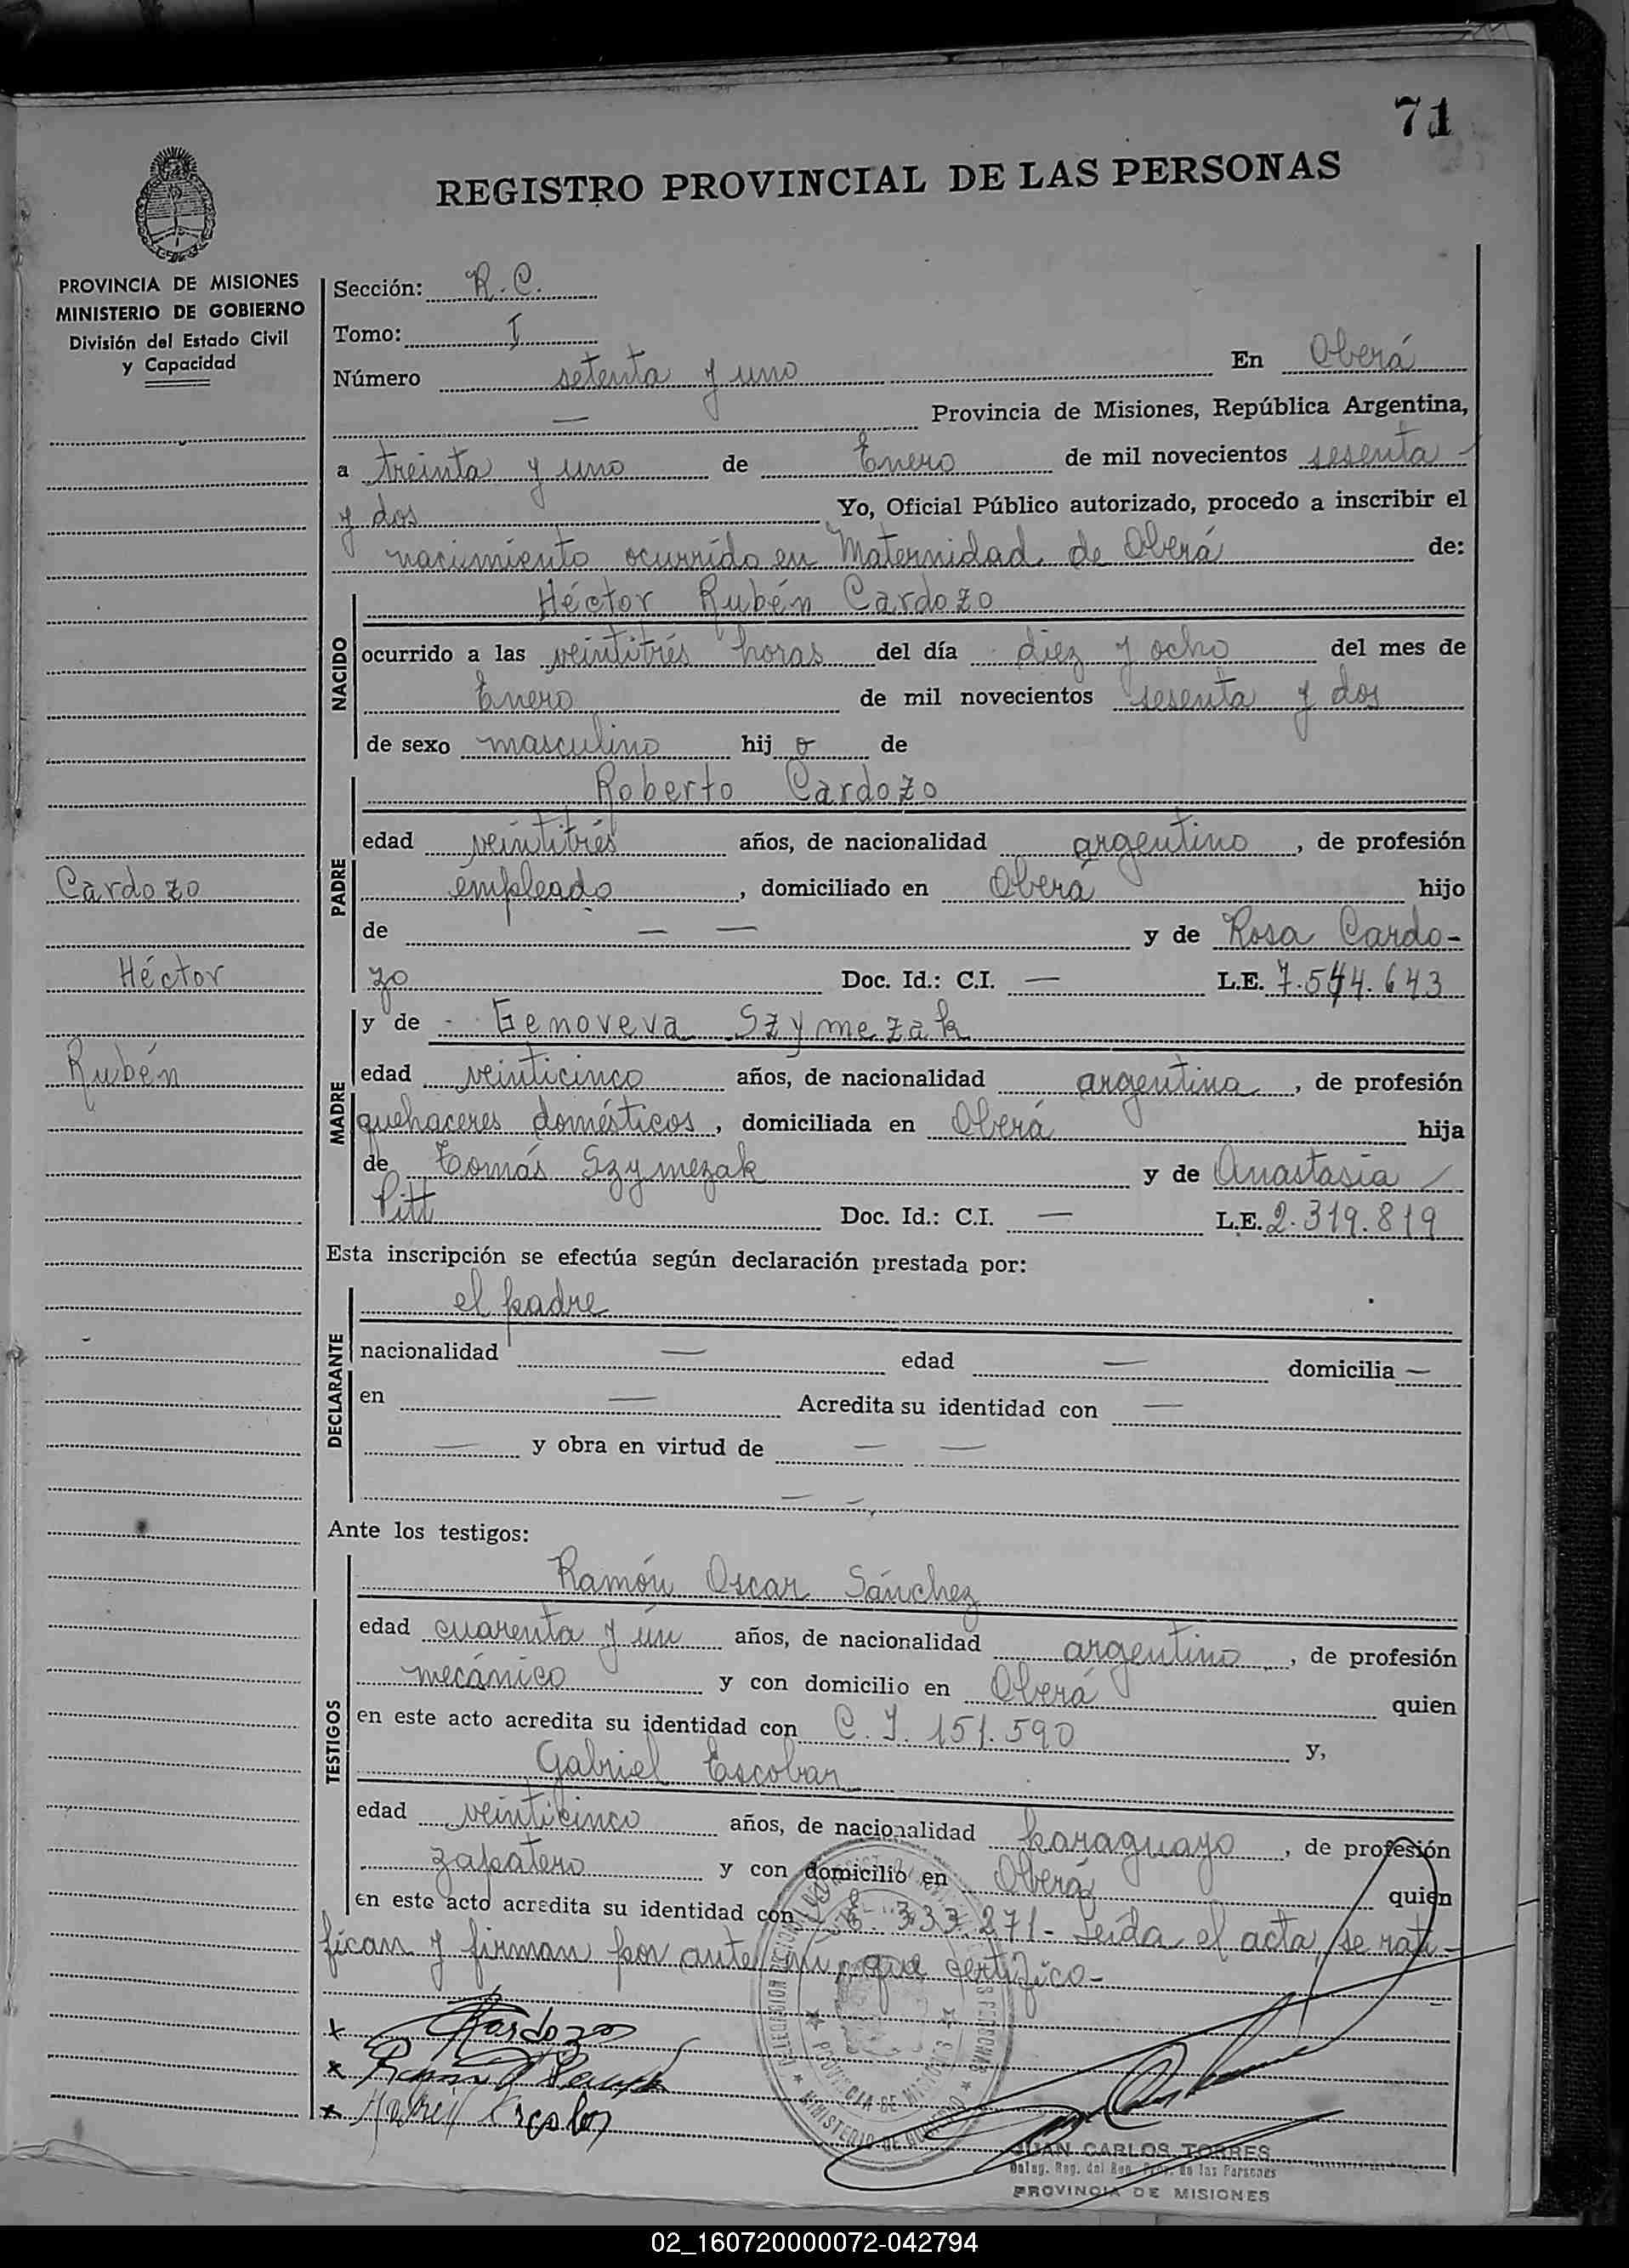 71
REGISTRO PROVINCIAL DE LAS PERSONAS
PROVINCIA DE MISIONES
MINISTERIO DE GOBIERNO
División del Estado Civil
y Capacidad
Sección: R. C.
Tomo: I
Número setenta y uno En Oberá
— Provincia de Misiones, República Argentina,
a treinta y uno de Enero de mil novecientos sesenta
y dos Yo, Oficial Público autorizado, procedo a inscribir el
nacimiento ocurrido en Maternidad de Oberá de:
NACIDO
Héctor Rubén Cardozo
ocurrido a las veintitrés horas del día diez y ocho del mes de
Enero de mil novecientos sesenta y dos
de sexo masculino hij o de
PADRE
Roberto Cardozo
edad veintitrés años, de nacionalidad argentino, de profesión
empleado, domiciliado en Oberá hijo
de — — y de Rosa Cardo-
zo Doc. Id.: C.I. — L.E. 7.544.643
MADRE
y de Genoveva Szymezak
edad veinticinco años, de nacionalidad argentina, de profesión
quehaceres domésticos, domiciliada en Oberá hija
de Tomás Szymezak y de Anastasia
Pitt Doc. Id.: C.I. — L.E. 2.319.819
Cardozo
Héctor
Rubén
Esta inscripción se efectúa según declaración prestada por:
DECLARANTE
el padre
nacionalidad — edad — domicilia —
en — Acredita su identidad con —
— y obra en virtud de — —
— —
Ante los testigos:
TESTIGOS
Ramón Oscar Sánchez
edad cuarenta y ún años, de nacionalidad argentino, de profesión
mecánico y con domicilio en Oberá quien
en este acto acredita su identidad con C. I. 151.590 y,
Gabriel Escobar
edad veinticinco años, de nacionalidad paraguayo, de profesión
zapatero y con domicilio en Oberá quien
en este acto acredita su identidad con 333.271- Leída el acta, se rati-
fican y firman por ante mi, que certifico-
x Cardozo
x
x
PROVINCIA DE MISIONES
MINISTERIO DE GOBIERNO
JUAN CARLOS TORRES
Deleg. Reg. del Reg. Prov. de las Personas
PROVINCIA DE MISIONES
02_160720000072-042794